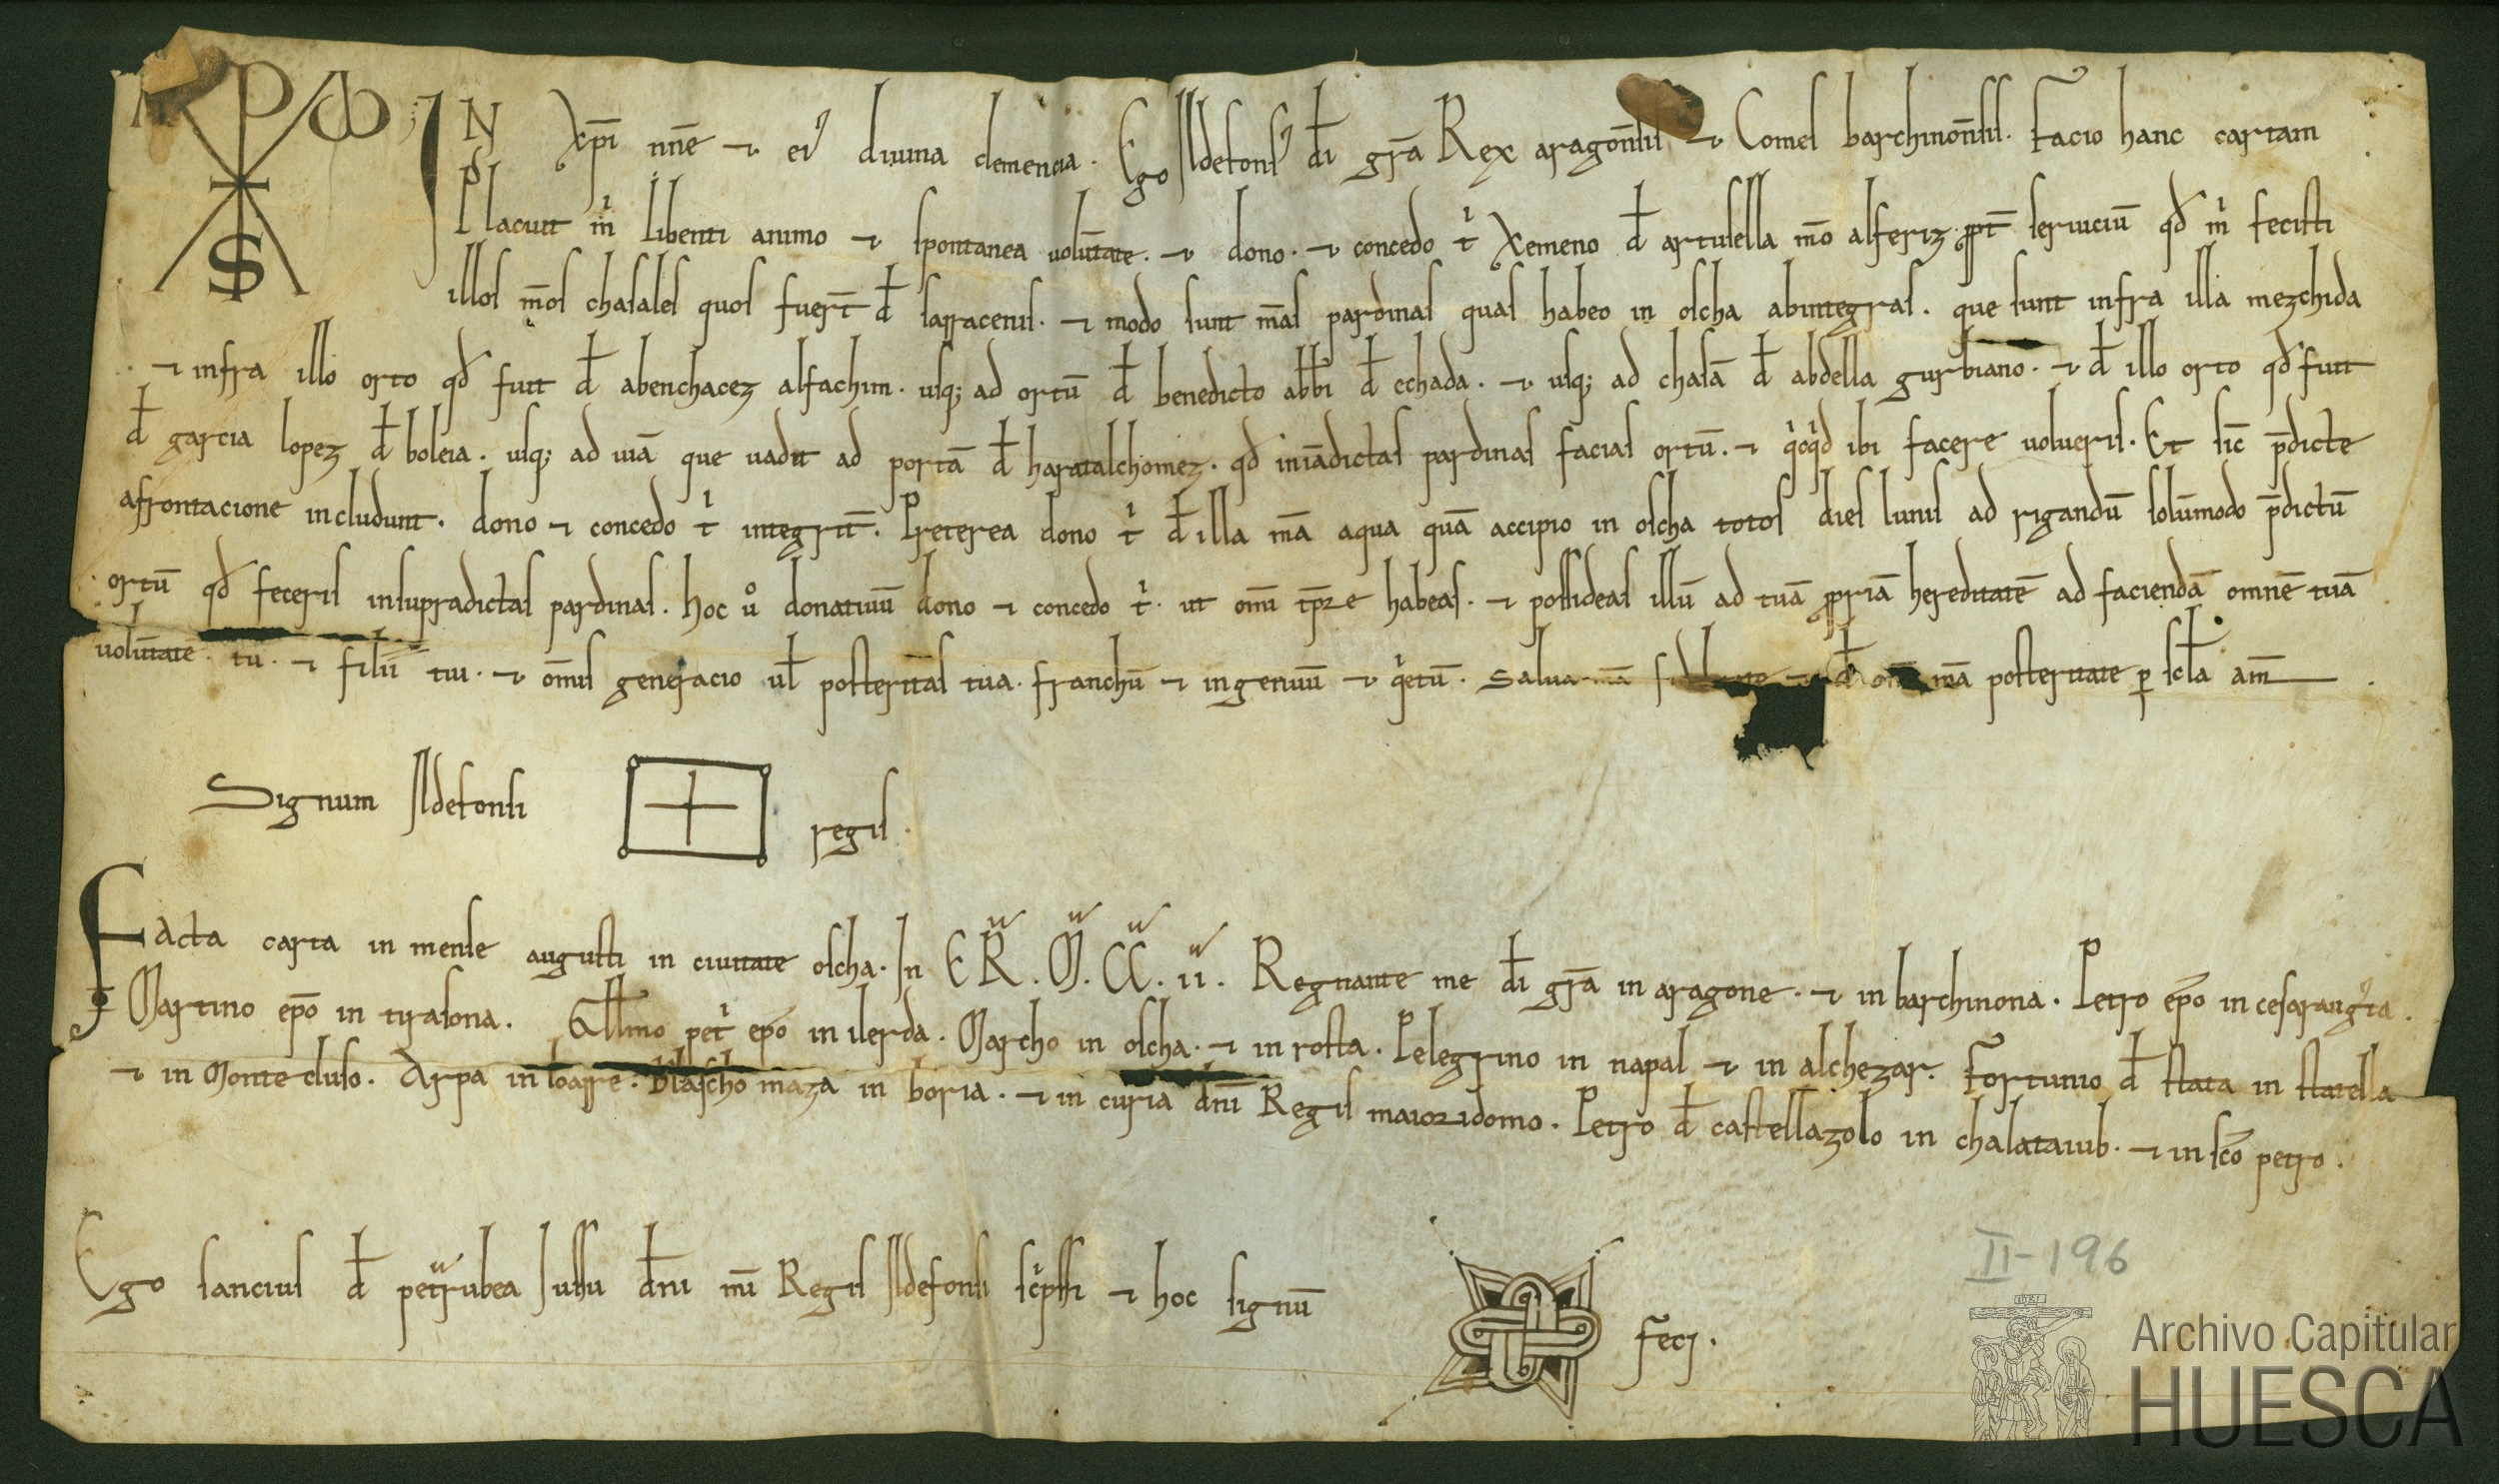 IN Xpı̄ nn̄e ⁊ eı᾽ diuina clemencia. Ego Ildefonsꝰ dı̄ gr̄a Rex aragon̄sis ⁊ Comes barchinon̄sis. Facio hanc cartam
Placuit m̍ libenti animo ⁊ spontanea uolūtate. ⁊ dono. ⁊ concedo t̍ Xemeno đ artusella m̄o alferiz ꝓpt̄ seruiciū qđ m̍ fecisti
illos m̄os chasales quos fuer̄t đ sarracenis. ⁊ modo sunt m̄as pardinas quas habeo in oscha abintegras. que sunt infra illa mezchida
⁊ infra illo orto qđ fuit đ abenchacez alfachim. usq; ad ortū đ benedicto abb̄i đ echada. ⁊ usq; ad chasā đ abdella gurbiano. ⁊ đ illo orto qđ fuit
đ garcia lopez đ boleia. usq; ad uiā que uadit ad portā đ haratalchomez. qđ in iādictas pardinas facias ortū. ⁊ q̍cq̍d ibi facere uolueris. Et sic̄ p̄dicte
afrontacione includunt. dono ⁊ concedo t̍ integrit̄. Preterea dono t̍ đ illa m̄a aqua quā accipio in oscha totos dies lunis ad rigandū solūmodo p̄dictū
ortū qđ feceris insupradictas pardinas. hoc ů donatiuū dono ⁊ concedo t̍. ut om̄i tp̄ꝛe habeas. ⁊ possideas illū ad tuā ꝓpriā hereditatē ad faciendā omnē tuā
uolūtatē. tu. ⁊ filii tui. ⁊ om̄is generacio uł posteritas tua. franchū ⁊ ingenuū ⁊ q̍etū. salua mā ⁊ đ m̄a posteritate ꝑ sc̄la am̄
Signum Ildefonsi regis.
Facta carta in mense augusti in ciuitate oscha. In ERͣ. Mͣ. CCͣ. iiͣ. Regnante me dı̄ gr̄a in aragone. ⁊ in barchinona. Petro ep̄o in cesaraugͣta.
Martino ep̄o in tirasona. Guillmo pet̍ ep̄o in ilerda. Marcho in oscha. ⁊ in rosta. Pelegrino in napal ⁊ in alchezar. Fortunio đ stata in statella
⁊ in Monte cluso. Arpa in loarre. Blascho maza in boria. ⁊ in curia dn̄i Regis maioꝛidomo. Petro đ castellazolo in chalataiub. ⁊ in sc̄o petro.
Ego sancius đ petͣrubea Iussu dn̄i mı̄ Regis Ildefonsi sc̍pssi ⁊ hoc signū feci.
II-196
Archivo Capitular
HUESCA